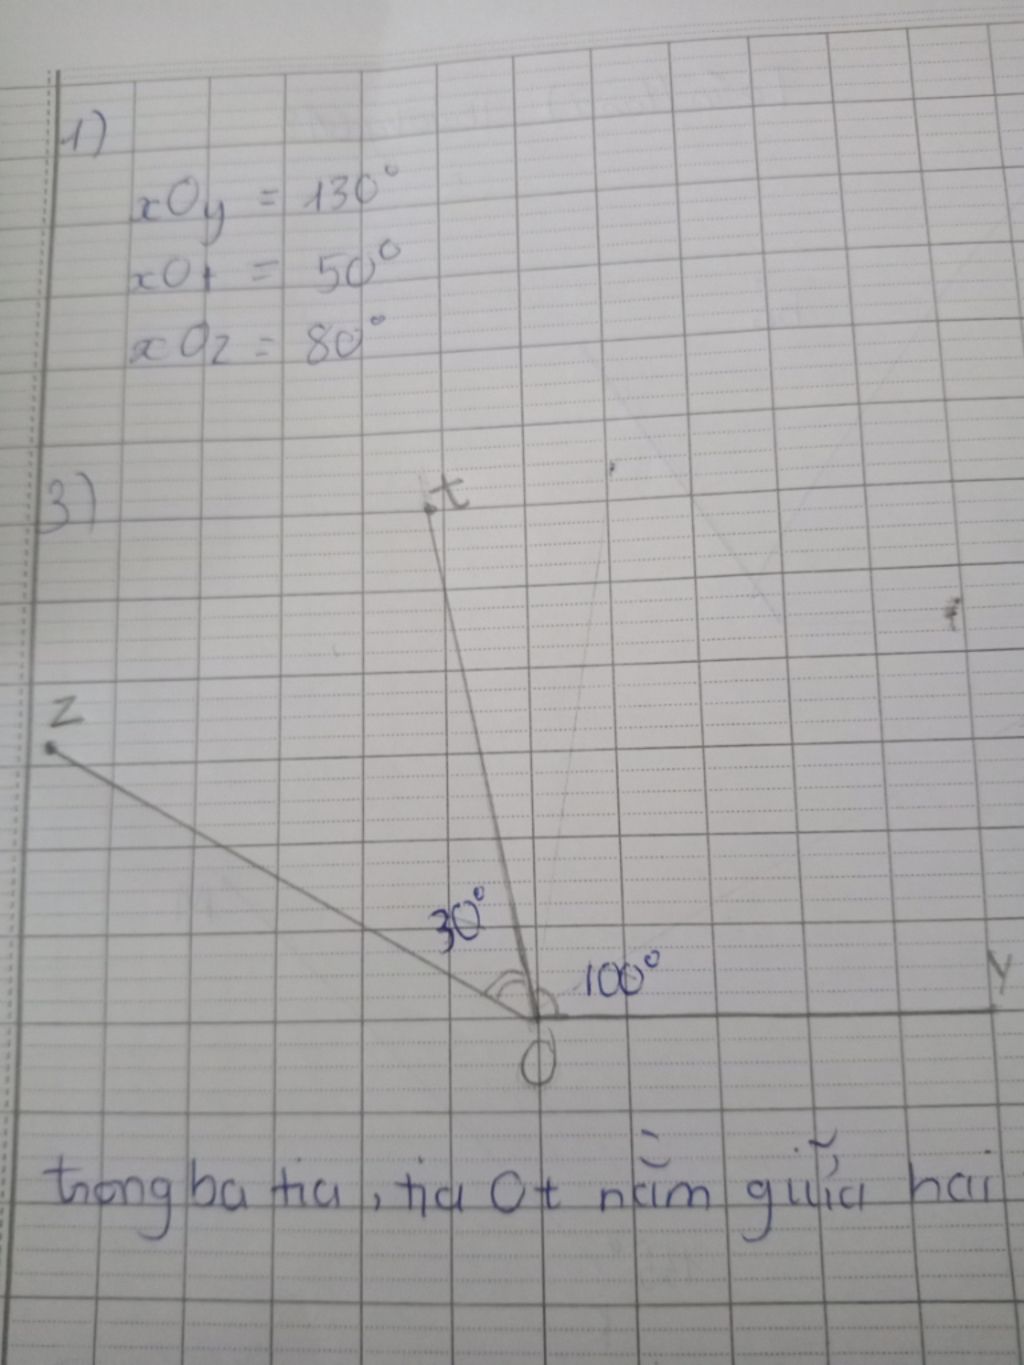 1)
xOy = 130°
xOt = 50°
xOz = 80°
3)
t
z
30°
100°
y
O
trong ba tia, tia Ot nằm giữa hai